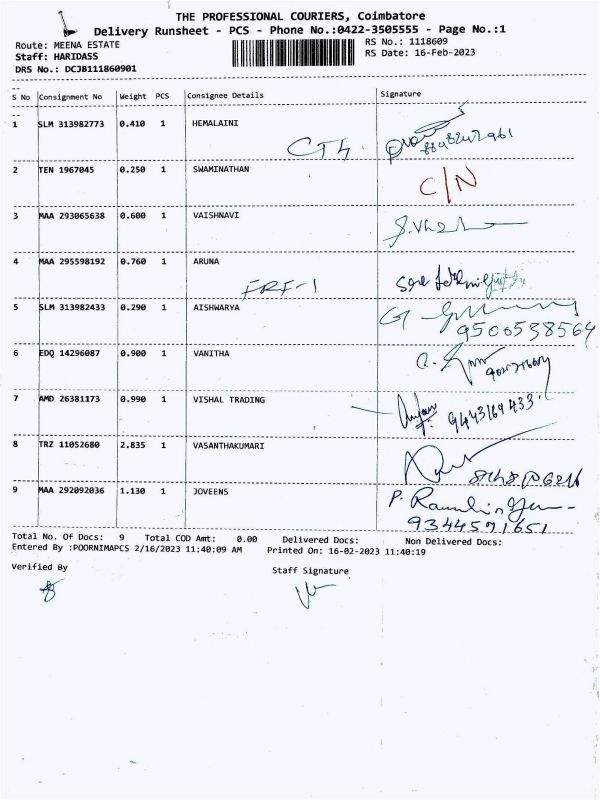 THE PROFESSIONAL COURIERS, Coimbatore
Delivery Runsheet - PCS - Phone No.:0422-3505555 - Page No.:1
Route: MEENA ESTATE
RS No.: 1118609
Staff: HARIDASS
RS Date: 16-Feb-2023
DRS No.: DCJB111860901
S No Consignment No Weight PCS Consignee Details Signature
1 SLM 313982773 0.410 1 HEMALAINI
2 TEN 1967045 0.250 1 SWAMINATHAN C/N
3 MAA 293065638 0.600 1 VAISHNAVI
4 MAA 295598192 0.760 1 ARUNA
5 SLM 313982433 0.290 1 AISHWARYA
9500538564
6 EDQ 14296087 0.900 1 VANITHA
7 AMD 26381173 0.990 1 VISHAL TRADING
9443164433
8 TRZ 11052680 2.835 1 VASANTHAKUMARI
9 MAA 292092036 1.130 1 JOVEENS
9344571651
Total No. Of Docs: 9 Total COD Amt: 0.00 Delivered Docs: Non Delivered Docs:
Entered By :POORNIMAPCS 2/16/2023 11:40:09 AM Printed On: 16-02-2023 11:40:19
Verified By
Staff Signature